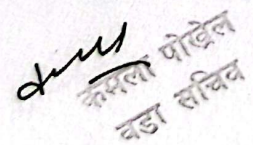 कमला पोखरेल
वडा सचिव